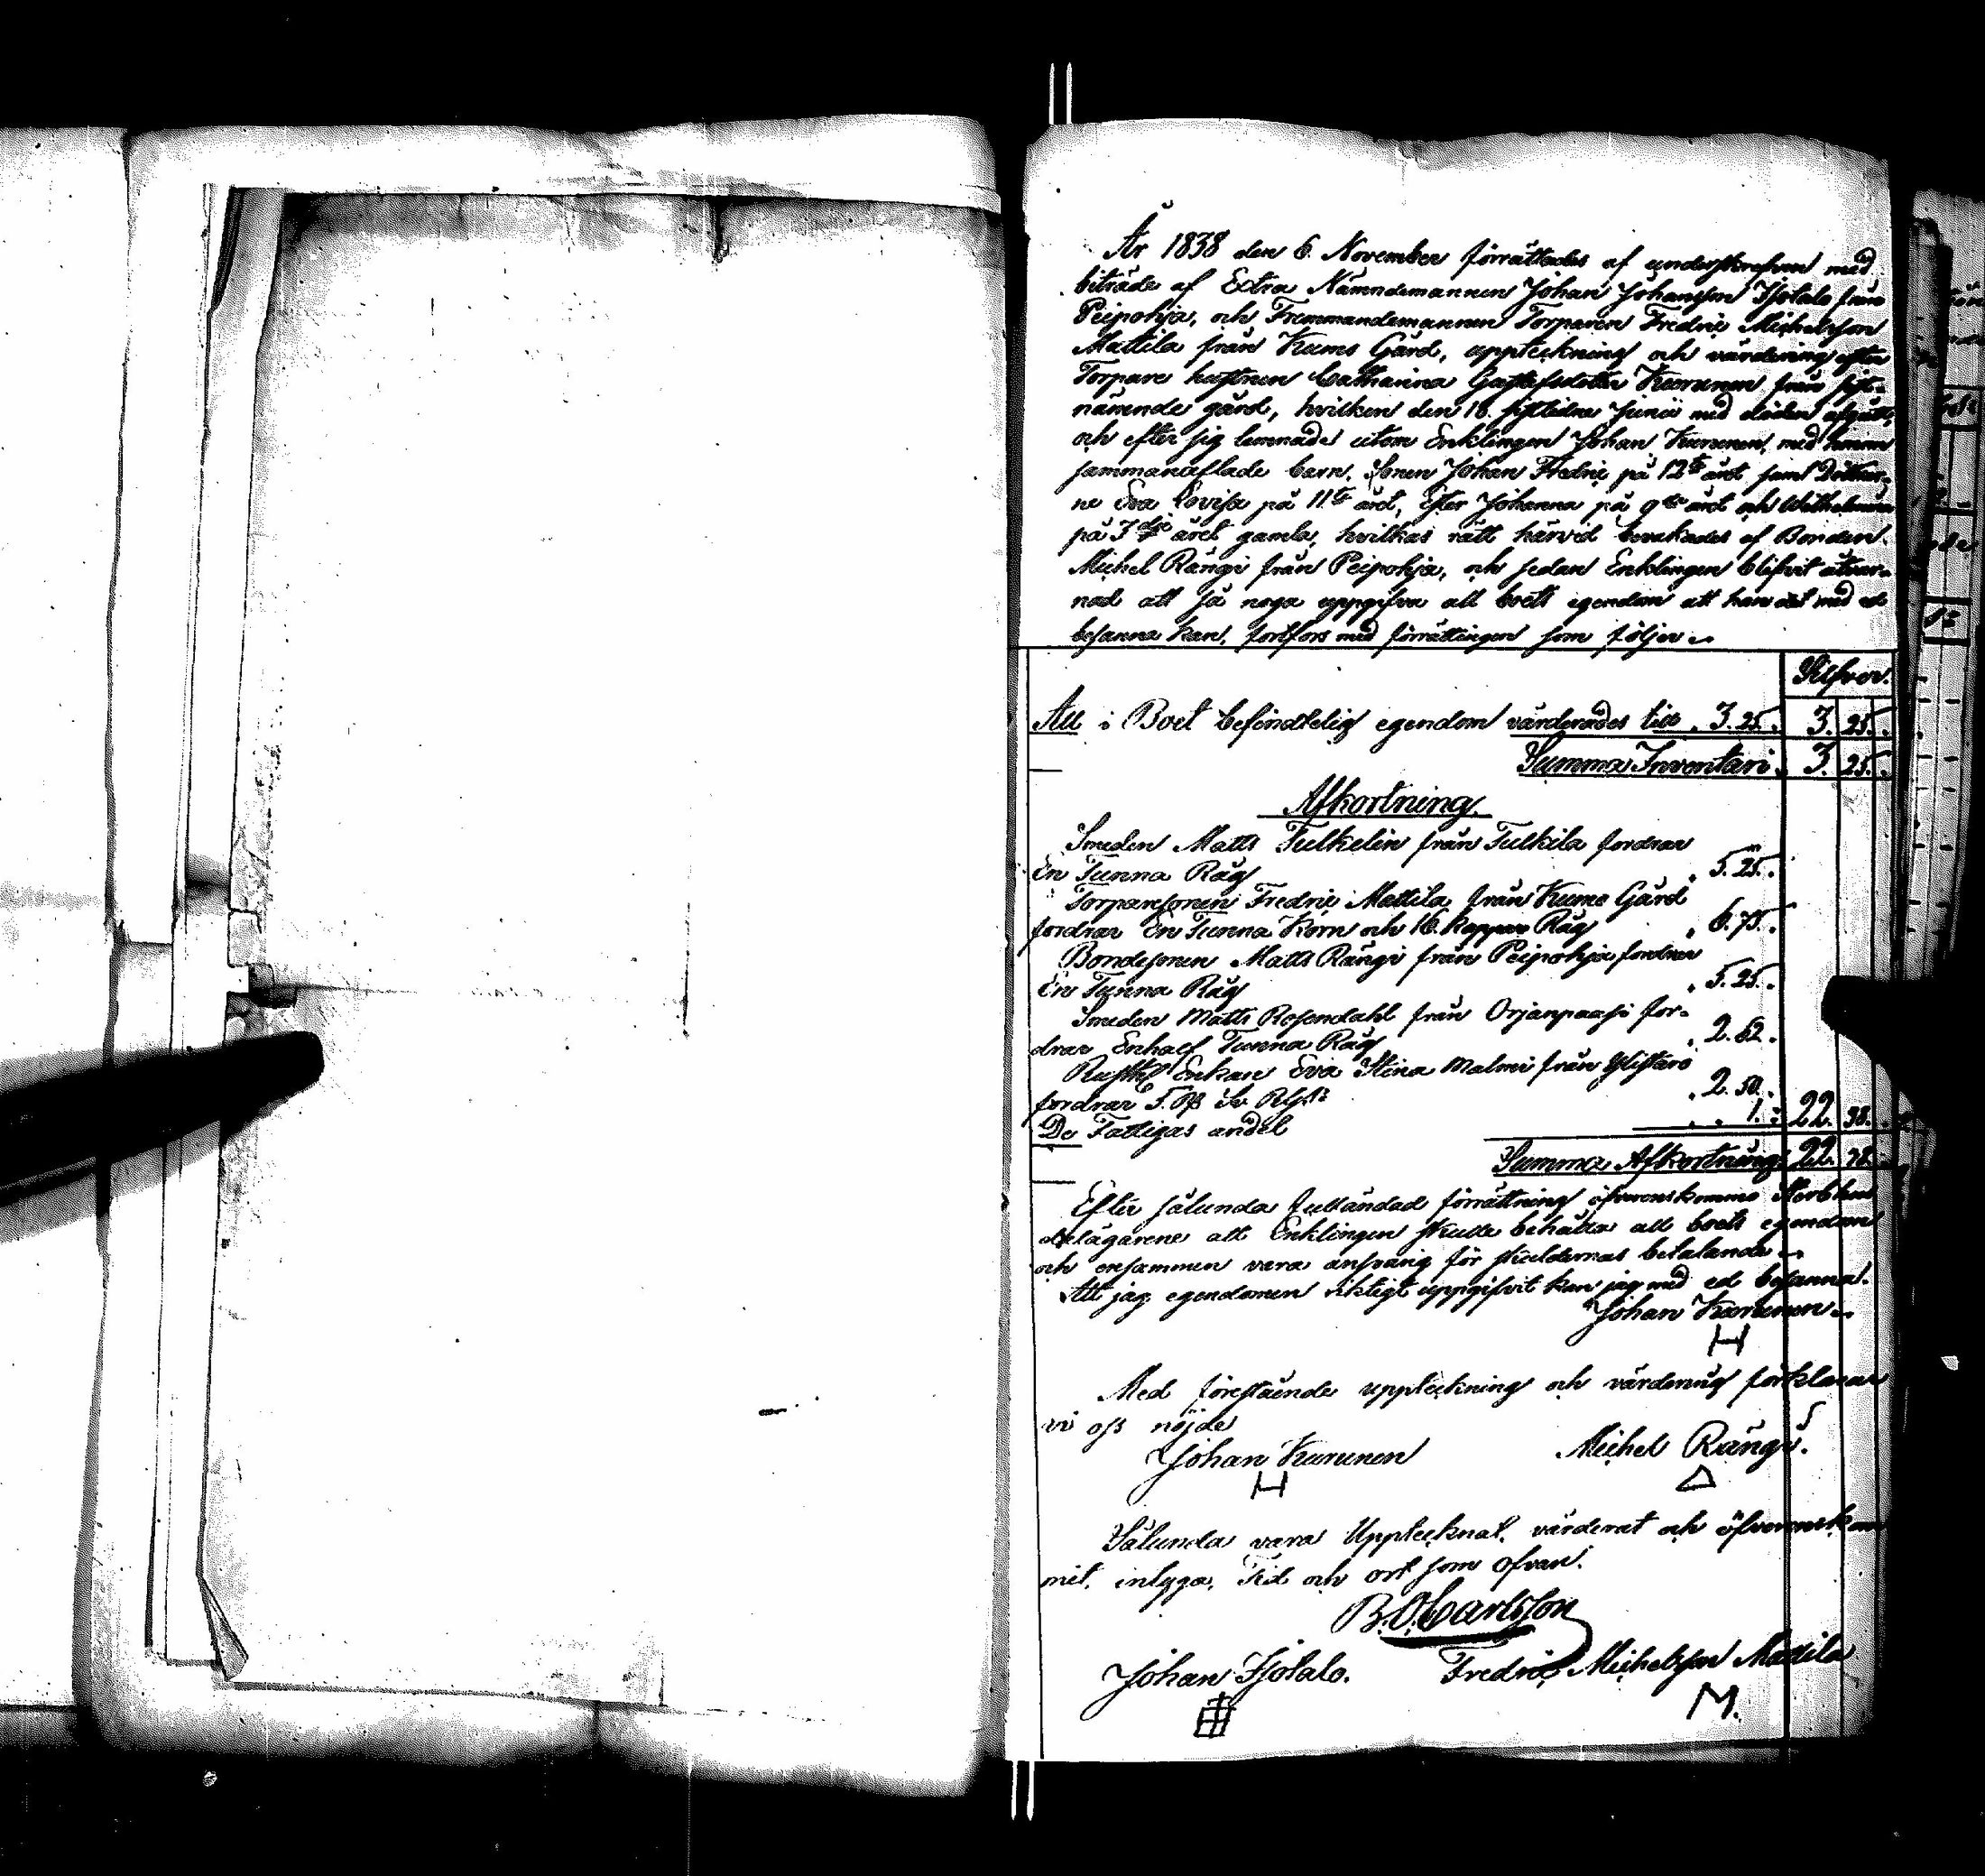 År 1838 den 6. November förrättades af underskrefven med
biträde af Extra Nämndemannen Johan Johansson Isotalo från
Peipohja, och Fremmandemannen Torparen Fredric Michelsson
Mattila från Kumo Gård, uppteckning och värdering efter
Torpare hustrun Catharina Gustafsdotter Kurunen från sist-
nämnde gård, hvilken den 18. sistledne Junii med döden afgått,
och efter sig lemnade utom Enklingen Johan Kurunen, med honom
sammanaflade barn, Sonen Johan Fredric på 12te året samt Döttrar-
ne Eva Lovisa på 11te året, Ester Johanna på 9de året och Wilhelmina
på 3dje året gamla, hvilkas rätt härvid bevakades af Bonden
Michel Rängi från Peipohja, och sedan Enklingen blifvit åtvar-
nad att så noga uppgifva all boets egendom att han det med ed
besanna kan, fortfors med förrättningen som följer
Silfver.
All i Boet befindtelig egendom värderades till . 3. 25. 3. 25.
Summa Inventari. 3. 25.
Afkortning.
Smeden Matts Tulkelin från Tulkila fordrar
En Tunna Råg . 5. 25.
Torparesonen Fredric Mattila från Kumo Gård
fordrar En Tunna Korn och 16. kappar Råg . 6. 75.
Bondesonen Matts Rängi från Peipohja fordrar
En Tunna Råg . 5. 25.
Smeden Matts Rosendahl från Orjanpaasi for-
drar Enhalf Tunna Råg . 2. 62.
Enkan Eva Stina Malmi från Ylistaro
fordrar . 2. 50.
De Fattigas andel . . 1. 22. 38.
Summa Afkortning 22. 38.
Efter sålunda fulländad förrättning öfverenskommo Sterbhus
delägarene att Enklingen skulle behålla all boets egendom
och ensammen vara ansvarig för skuldernas betalande
Att jag egendomen riktigt uppgifvit kan jag med ed besanna.
Johan Kurunen
H
Med förestående uppteckning och värdering förklarar
vi oss nöjde
Johan Kurunen Michel Rängi.
H
Sålunda vara Upptecknat, värderat och öfverenskom
mit, intyga, Tid och ort som ofvan.
B. O. Carlsson
Johan Isotalo. Fredric Michelsson Mattila
M.